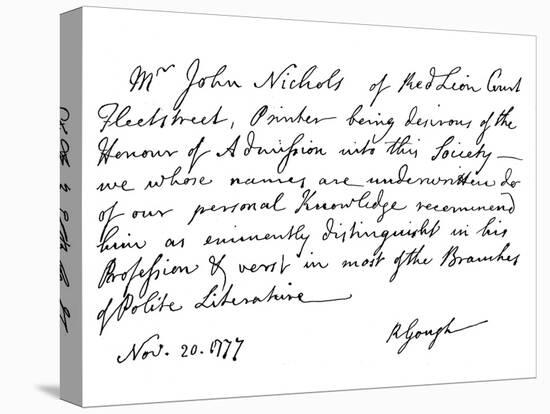 Mr John Nichols of Red Lion Court
Fleetstreet, Printer being desirous of the
Honour of Admission into this Society —
we whose names are underwritten do
of our personal Knowledge recommend
him as eminently distinguisht in his
Profession & verst in most of the Branches
of Polite Literature
RGough
Nov. 20. 1777